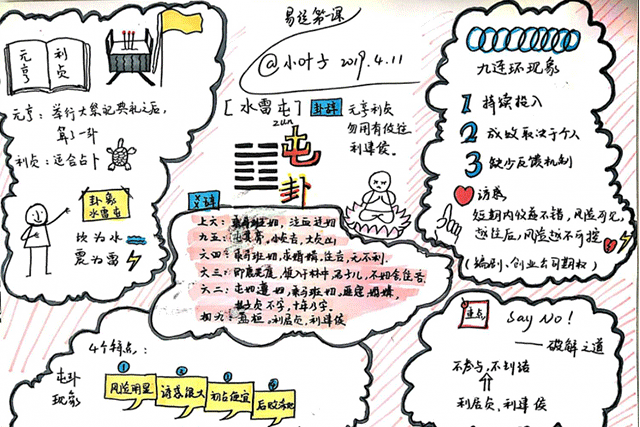 易经第一课
@小叶子 2019.4.11
元亨
利贞
元亨：举行大祭祀典礼之后，
算了一卦
利贞：适合占卜
卦象
水雷屯
坎为水
震为雷
[水雷屯]
zun
卦辞
元亨利贞
勿用有攸往
利建侯。
屯
卦
爻辞
上六：乘马班如，泣血涟如
九五：屯其膏，小贞吉，大贞凶
六四：乘马班如，求婚媾，往吉，无不利。
六二：屯如邅如，乘马班如，匪寇婚媾，
女子贞不字，十年乃字。
初九：磐桓，利居贞，利建侯
九连环现象
1 持续投入
2 成败取决于个人
3 缺少反馈机制
诱惑
短期内收益不错，风险可见，
越往后，风险越不可控
(编剧、创业公司期权)
4个特点：
屯卦
现象
1 2 3 4
风险明显
诱惑很大
初占便宜
重点
Say No!
——破解之道
不参与，不纠结
利居贞，利建侯